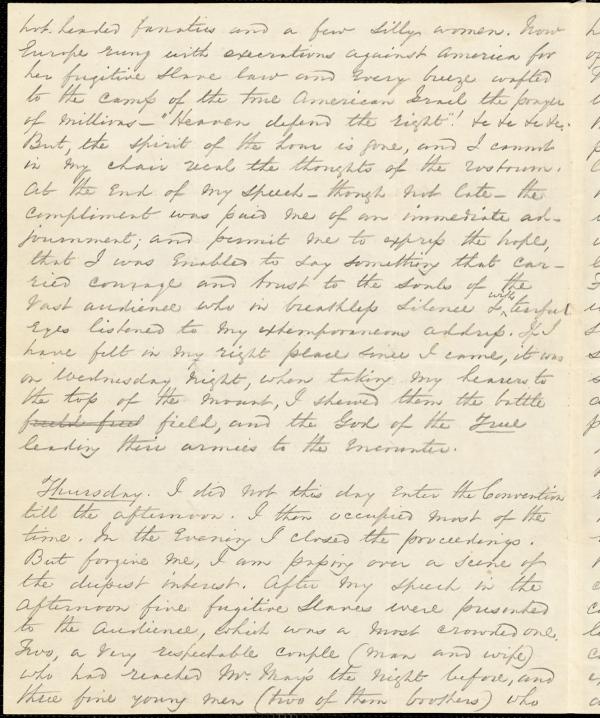 hot-headed fanatics and a few silly women. Now
Europe rung with execrations against America for
her fugitive slave law and every breeze wafted
to the camp of the true American Israel the prayer
of millions - "Heaven defend the right"! &c &c &c &c.
But, the spirit of the hour is gone, and I cannot
in my chair recal the thoughts of the rostrum.
At the end of my speech - though not late - the
compliment was paid me of an immediate ad-
journment; and permit me to express the hope,
that I was enabled to say something that car-
ried courage and trust to the souls of the
vast audience who in breathless silence & with tearful
eyes listened to my extemporaneous address. If I
have felt in my right place since I came, it was
on Wednesday night, when taking my hearers to
the top of the mount, I shewed them the battle
field, and the God of the True
leading their armies to the encounter.
Thursday. I did not this day enter the Convention
till the afternoon. I then occupied most of the
time. In the Evening I closed the proceedings.
But forgive me, I am passing over a scene of
the deepest interest. After my speech in the
afternoon five fugitive slaves were presented
to the audience, which was a most crowded one.
Two, a very respectable couple (man and wife)
who had reached Mr. May's the night before, and
three fine young men (two of them brothers) who